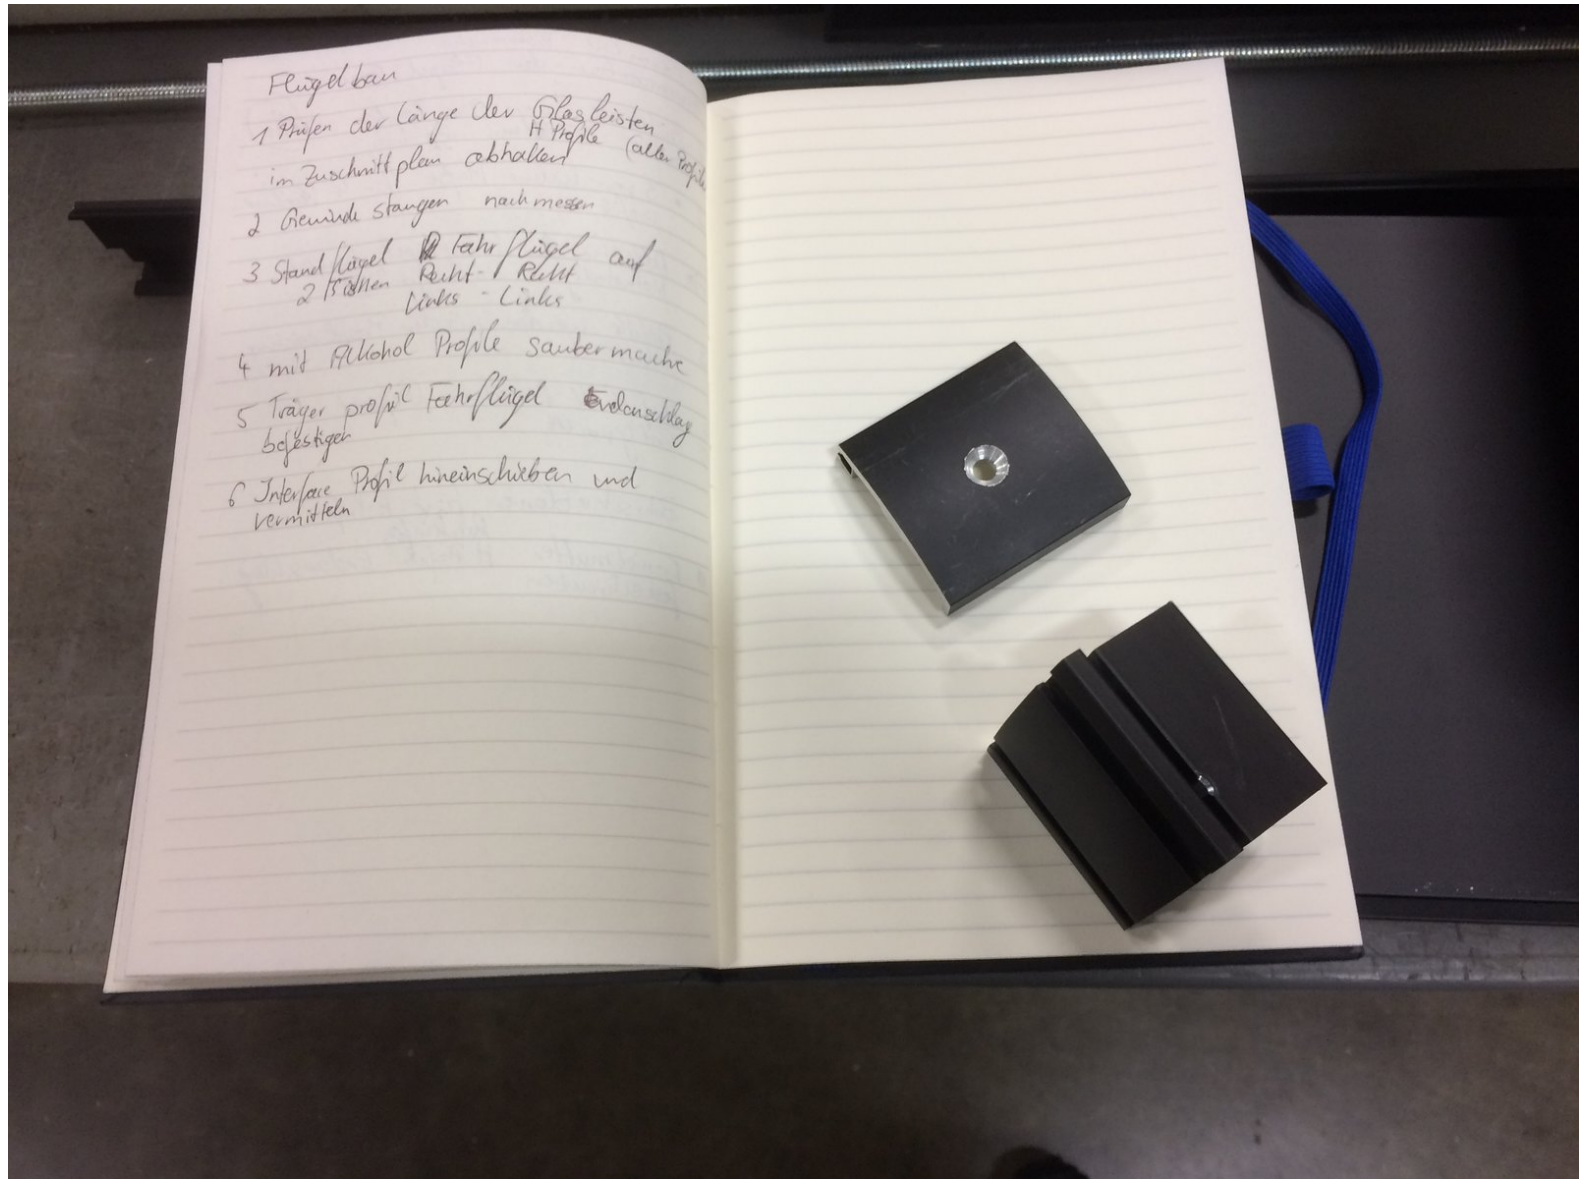 Flügelbau
1 Prüfen der Länge der Glasleisten
H Profile (aller Profile
im Zuschnittplan abhallen
2 Gewinde stangen nachmessen
3 Standflügel Fahrflügel auf
2 Tischen Recht - Recht
Links - Links
4 mit Alkohol Profile saubermache
5 Träger profil Fahrflügel Endanschlag
befestigen
6 Interface Profil hineinschieben und
vermitteln